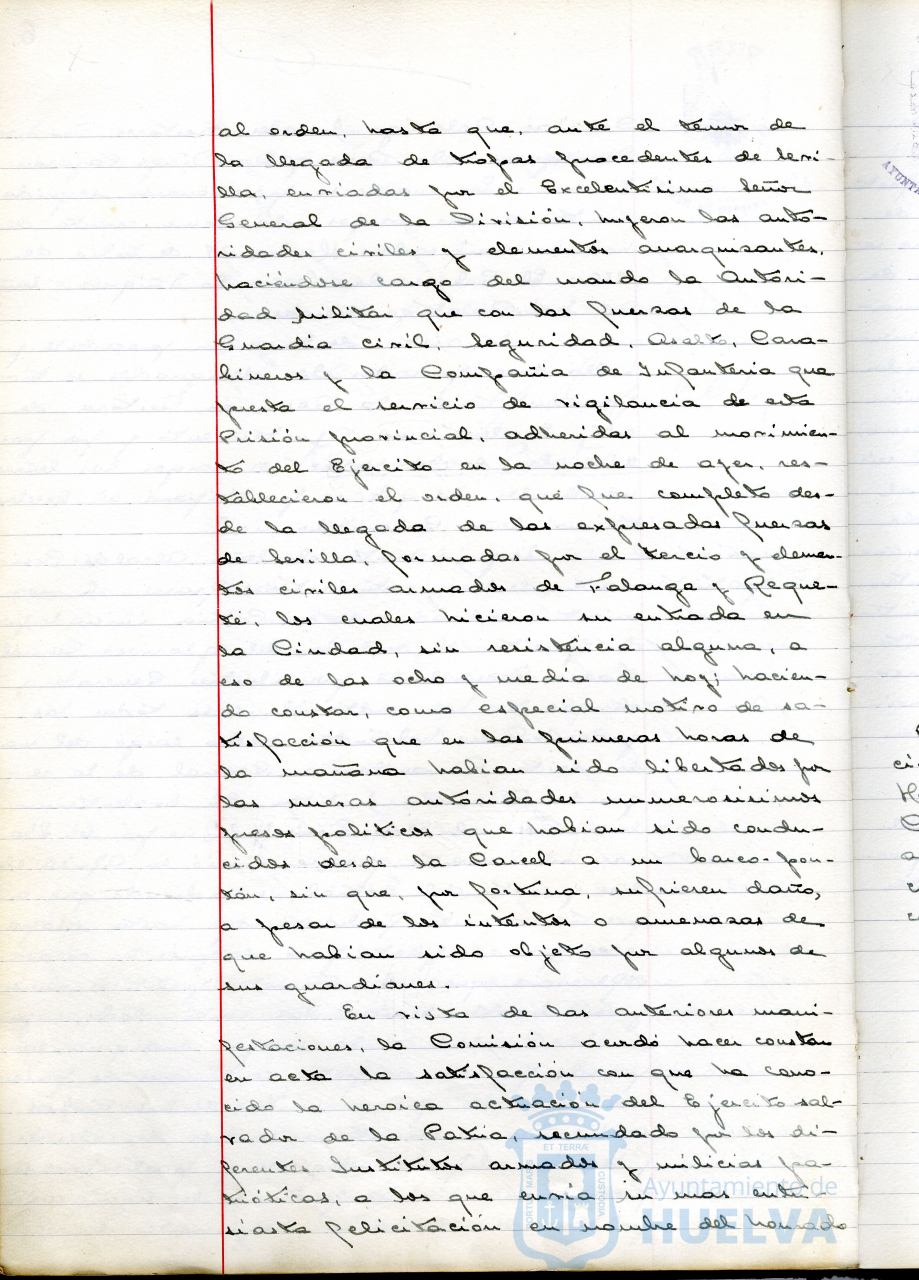 al orden, hasta que, ante el temor de
la llegada de tropas procedentes de Sevi-
lla, enviadas por el Excelentísimo Señor
General de la División, huyeron las auto-
ridades civiles y elementos anarquisantes,
haciéndose cargo del mando la Autori-
dad Militar que con las fuerzas de la
Guardia civil, Seguridad, Asalto, Cara-
bineros y la Compañia de Infanteria que
presta el servicio de vigilancia de esta
Prisión provincial, adheridas al movimien-
to del Ejercito en la noche de ayer, res-
tablecieron el orden, que fue completo des-
de la llegada de las expresadas fuerzas
de Sevilla, formadas por el Tercio y elemen-
tos civiles armados de Falange y Reque-
té, los cuales hicieron su entrada en
la Ciudad, sin resistencia alguna, a
eso de las ocho y media de hoy; hacien-
do constar, como especial motivo de sa-
tisfacción que en las primeras horas de
la mañana habian sido libertados por
las nuevas autoridades numerosisimos
presos politicos que habian sido condu-
cidos desde la Carcel a un barco-pon-
tón, sin que, por fortuna, sufrieren daño,
a pesar de los intentos o amenazas de
que habian sido objeto por algunos de
sus guardianes.
En vista de las anteriores mani-
festaciones, la Comisión acordó hacer constar
en acta la satisfacción con que ha cono-
cido la heroica actuación del Ejercito sal-
vador de la Patria, secundado por los di-
ferentes Institutos armados y milicias pa-
trióticas, a los que envia su mas entu-
siasta felicitación en nombre del honrado
ET TERRA
PORTUS MARIS
CUSTODIA
Ayuntamiento de
HUELVA